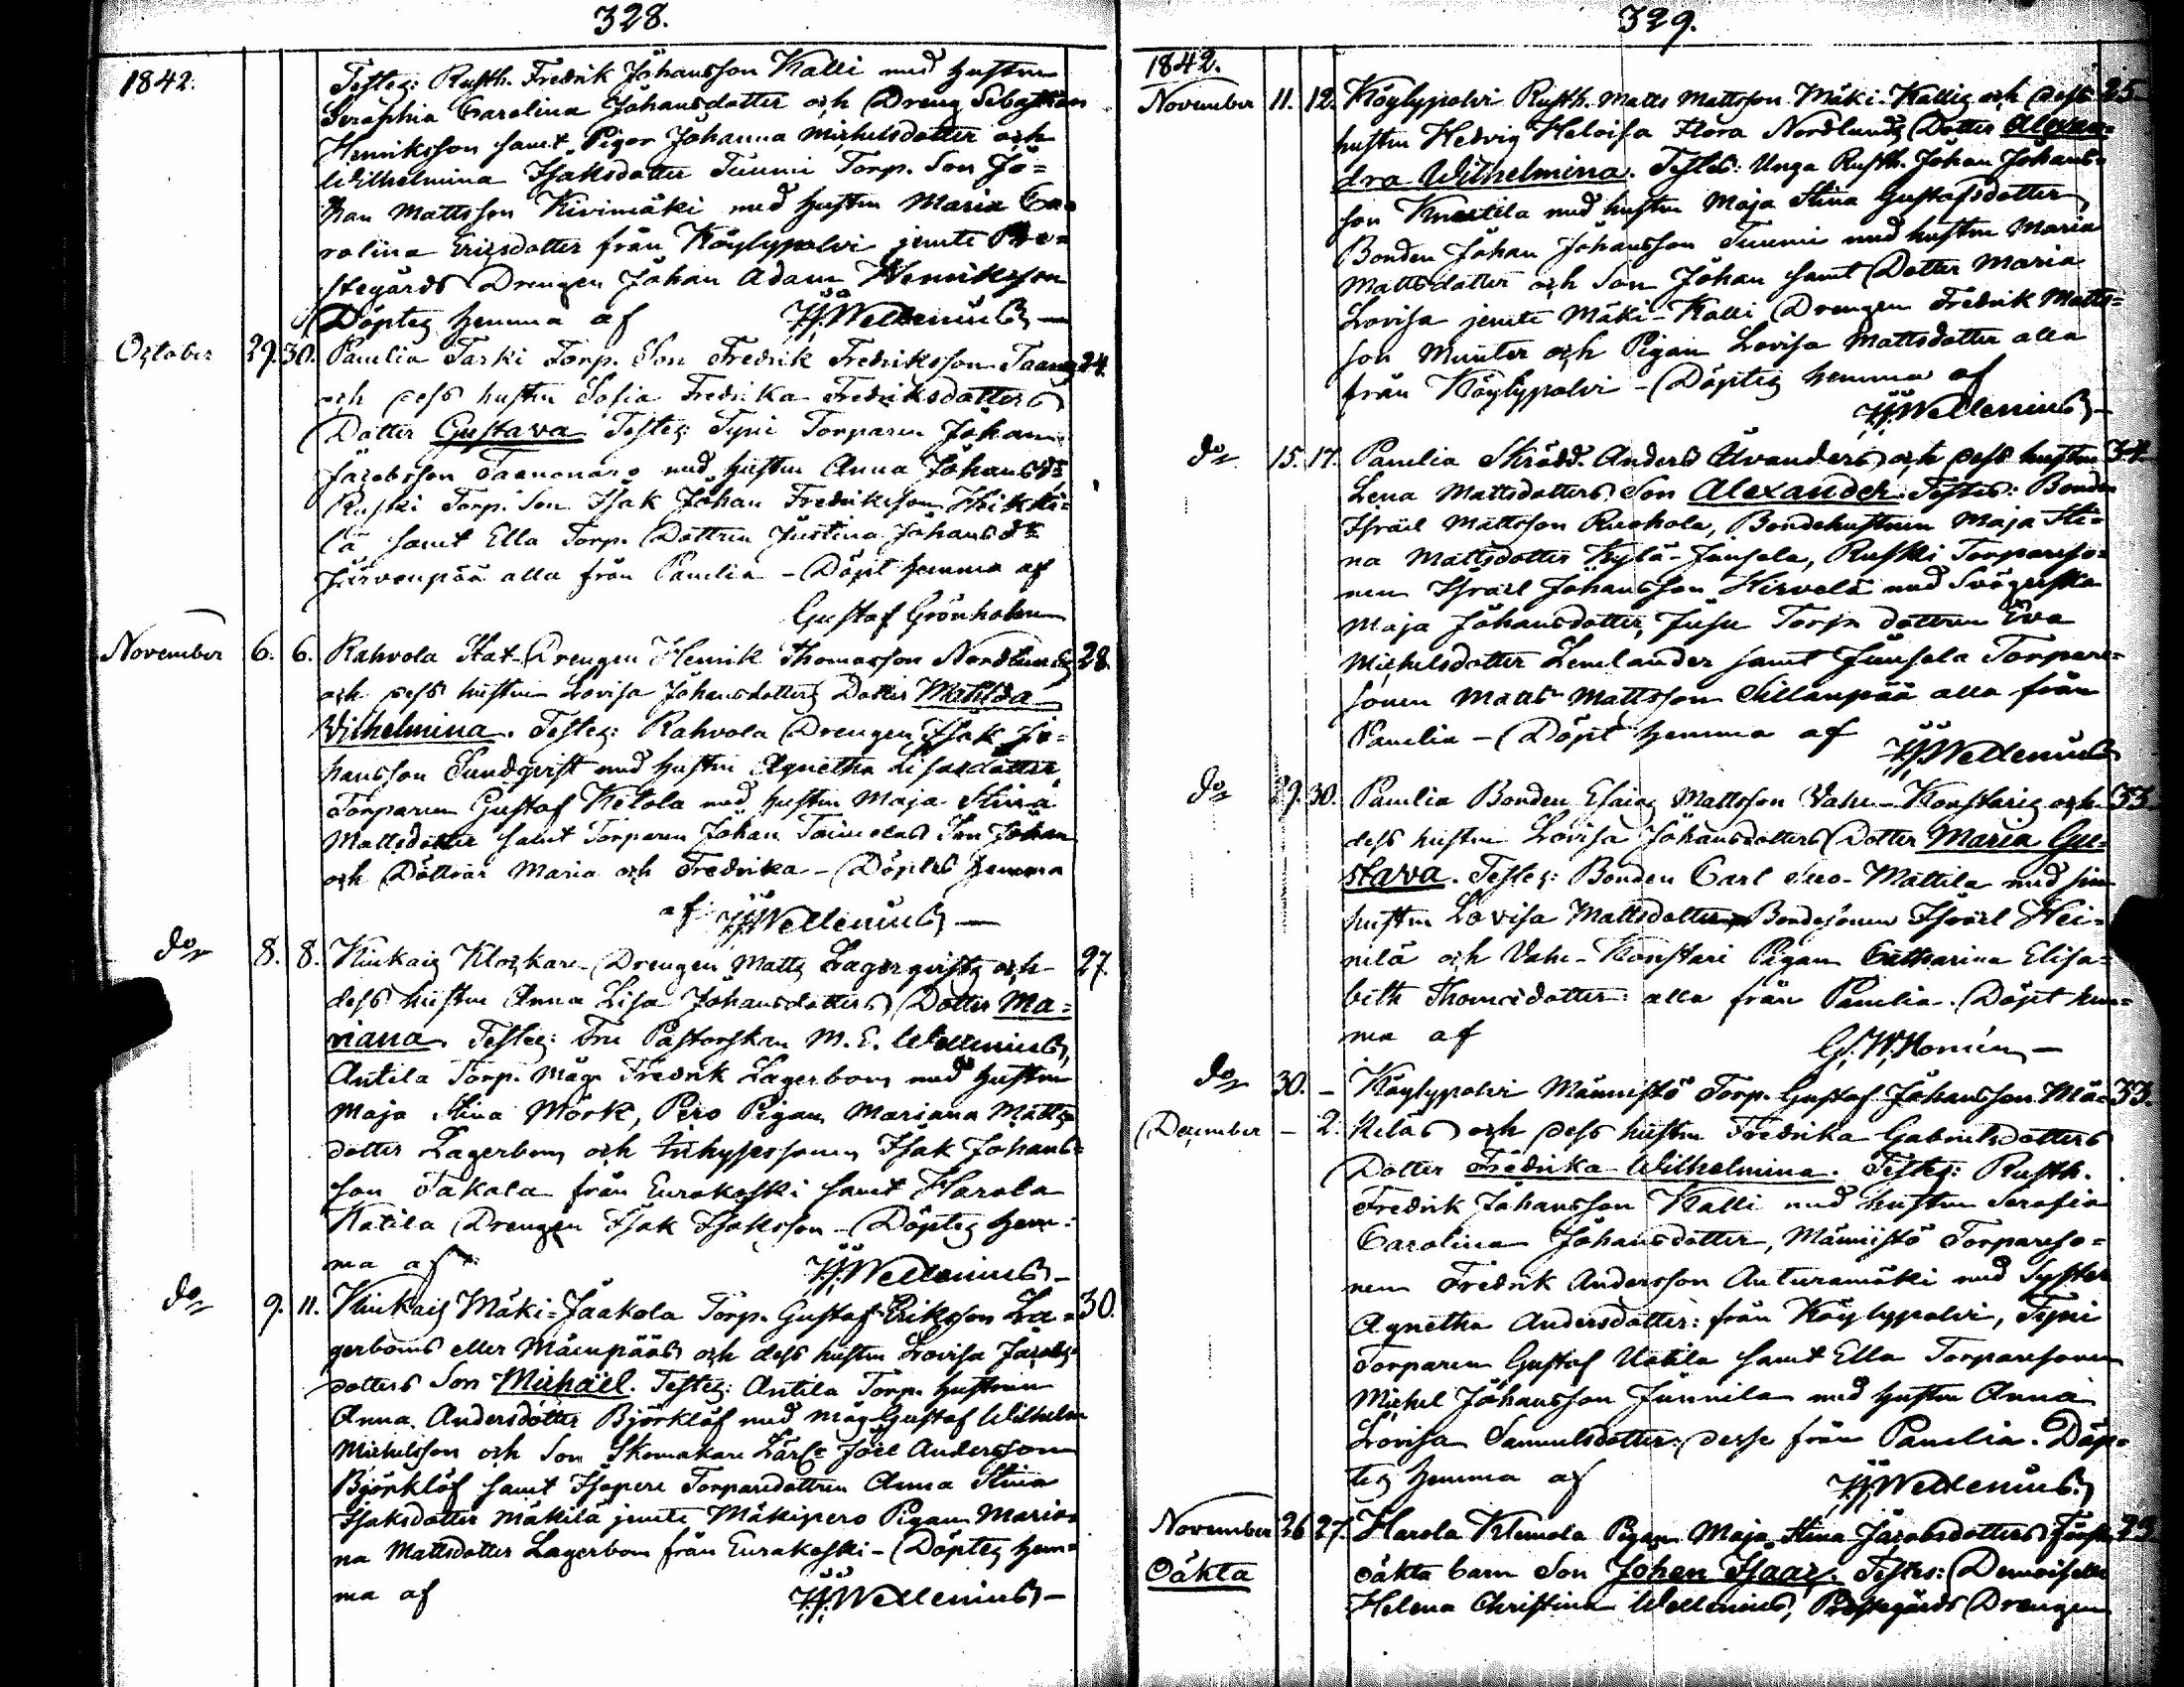 328.
1842.
Testes: Rusth. Fredrik Johansson Kalli med hustru
Seraphia Carolina Johansdotter och Dreng Sebastian
Henriksson samt Pigor Johanna Michelsdotter och
Wilhelmina Isaksdotter Tuumi Torp. Son Jo=
han Mattsson Kivimäki med hustru Maria Ca=
rolina Ericsdotter från Köylypolvi jemte Pre=
stegårds Drengen Johan Adam Henriksson
Döptes hemma af H.J. Wellenius
October 29. 30. Panelia Tarki Torp. Son Fredrik Fredriksson 24.
och dess hustru Sofia Fredrika Fredriksdotters
Dotter Gustava Testes: Tyni Torparen Johan
Jacobsson Taanonaro med hustru Anna Johansdr
Ruski Torp. Son Isak Johan Fredriksson Heikki=
lä samt Ella Torp. Dottren Justina Johansdr
Järvenpää alla från Panelia - Döpt hemma af
Gustaf Grönholm
November 6. 6. Rahvola Stat-Drengen Henrik Thomasson Nordlunds 28.
och dess hustru Lovisa Johansdotters Dotter Matilda
Vilhelmina. Testes: Rahvola Drengen Isak Jo=
hansson Sundqvist med hustru Agnetha Lisasdotter,
Torparen Gustaf Ketola med hustru Maja Stina
Mattsdotter samt Torparen Johan Toimelas Son Johan
och Döttrar Maria och Fredrika - Döptes hemma
af H.J. Wellenius
do 8. 8. Kiukais Klockare-Drengen Matts Lagerqvists och 27.
dess hustru Anna Lisa Johansdotters Dotter Ma=
riana. Testes: Fru Pastorskan M. E. Wellenius,
Antila Torp. Måg Fredrik Lagerbom med hustru
Maja Stina Mörk, Pero Pigan Mariana Matts
dotter Lagerbom och Isak Johans=
son Takala från Eurakoski samt Harola
Katila Drengen Isak Isaksson - Döptes hem=
ma af H.J. Wellenius
do 9. 11. Kiukais Mäki-Jaakola Torp. Gustaf Eriksson La= 30.
gerboms eller Mäenpääs och dess hustru Lovisa Jacobs
dotters Son Michael. Testes: Antila Torp. hustrun
Anna Andersdotter Björklöf med måg Gustaf Wilhelm
Michelsson och Son Skomakare Lärl: Joel Andersson
Björklöf samt Isopere Torparedottren Anna Stina
Isaksdotter Mäkilä jemte Mäkipero Pigan Maria=
na Mattsdotter Lagerbom från Eurakoski - Döptes hem=
ma af H.J. Wellenius
329.
1842.
November 11. 12. Köylypolvi Rusth. Matts Mattsson Mäki-Kallis och dess 25.
hustru Hedvig Heloisa Flora Nordlunds Dotter Alexan=
dra Wilhelmina. Testes: Unga Rusth. Johan Johans=
son Knaatila med hustru Maja Stina Gustafsdotter,
Bonden Johan Johansson Tuumi med hustru Maria
Mattsdotter och Son Johan samt Dotter Maria
Lovisa jemte Mäki-Kalli Drengen Fredrik Matts=
son Munter och Pigan Lovisa Mattsdotter alla
från Köylypolvi - Döptes hemma af
H.J. Wellenius
do 15. 17. Panelia Skrädd. Anders Alvanders och dess hustru 34
Lena Mattsdotters Son Alexander. Testes: Bonden
Israel Mattsson Ruohola, Bondehustrun Maja Sti=
na Mattsdotter Kylä-Junsela, Ruski Torpareso=
nen Israel Johansson Hirvelä med Svägerska
Maja Johansdotter, Jusu Torp. dottren Eva
Michelsdotter Lemlander samt Junsela Torpare=
sonen Matts Mattsson Sillanpää alla från
Panelia - Döpt hemma af H.J. Wellenius
do 29. 30. Panelia Bonden Esaias Mattsson Vahe-Konstaris och 33
dess hustru Lovisa Johansdotters Dotter Maria Gu=
stava. Testes: Bonden Carl Suo-Mattila med sin
hustru Lovisa Mattsdotter, Bondesonen Israel Hei=
nilä och Vahe-Konstari Pigan Catharina Elisa=
beth Thomasdotter: alla från Panelia. Döpt hem=
ma af G.W. Monién
do 30. - Köylypolvi Männistö Torp. Gustaf Johansson Mä= 33.
December - 2. kiläs och dess hustru Fredrika Gabrielsdotters
Dotter Fredrika Wilhelmina. Testes: Rusth.
Fredrik Johansson Kalli med hustru Serafia
Carolina Johansdotter, Männistö Torpareso=
nen Fredrik Andersson Anturamäki med Syster
Agnetha Andersdotter: från Köylypolvi, Tyni
Torparen Gustaf Uotila samt Ella Torparesonen
Michel Johansson Junnila med hustru Anna
Lovisa Samuelsdotter: desse från Panelia. Döp=
tes hemma af H.J. Wellenius
November 26 27. Harola Klemola Pigan Maja Stina Jacobsdotters första 29
Oäkta oäkta barn Son Johan Isaac. Testes: Demoiselle
Helena Christina Wellenius, Prestegårds Drengen